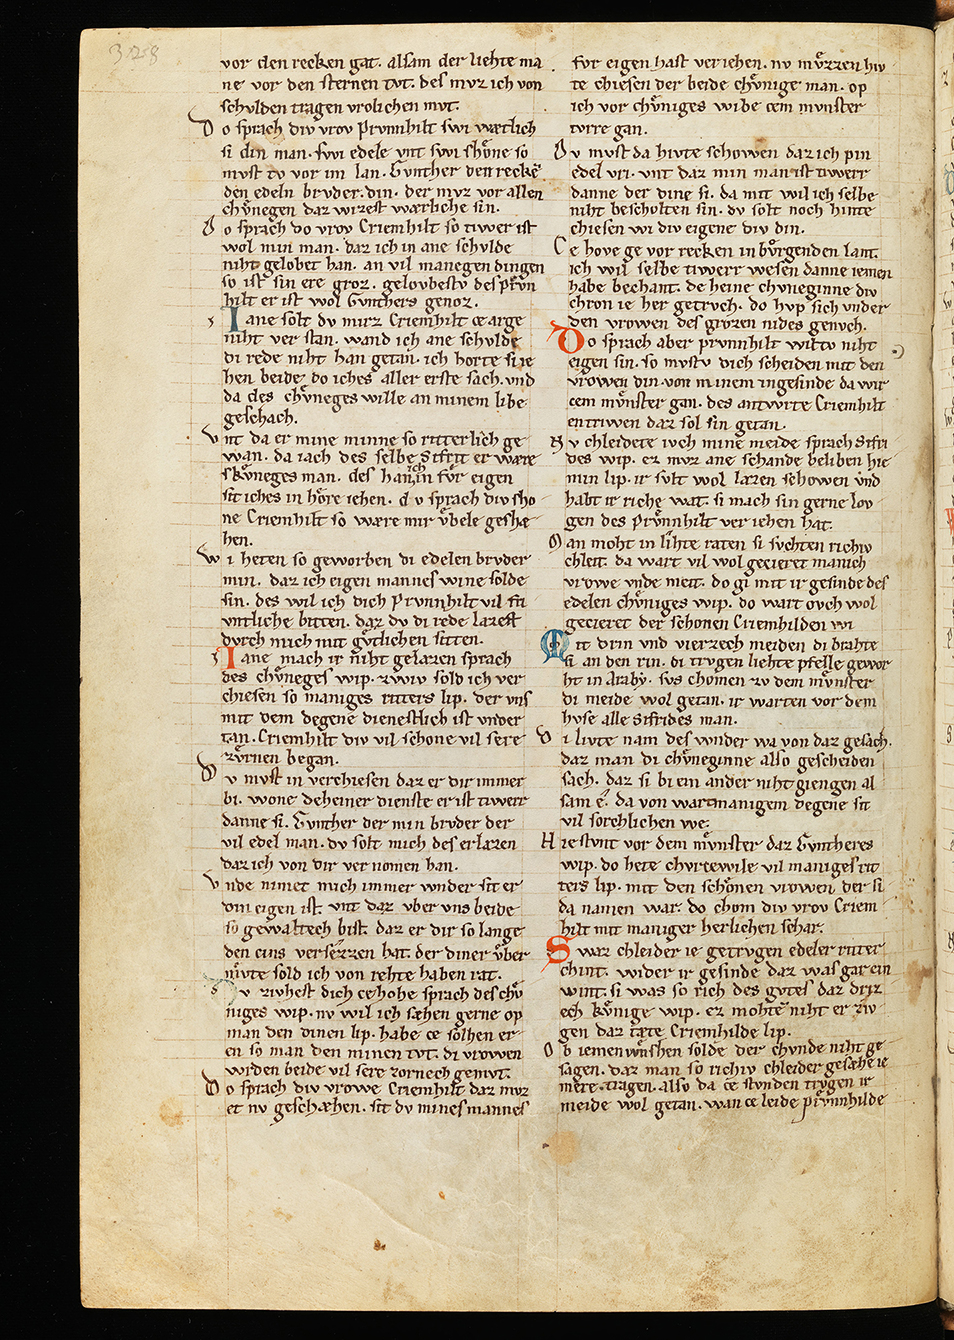 328
vor den recken gat. alsam der liehte ma
ne vor den sternen tvt. des mvz ich von
schvlden tragen vrolichen mvt.
Do sprach div vrov Prvnnhilt swi wætlich
si din man. swi edele vnt swi shoͤne so
mvst tv vor im lan. Gvnther den reckē
den edeln brvder. din. der mvz vor allen
chvͤnegen daz wizest wærliche sin.
Do sprach do vrov Criemhilt so tiwer ist
wol min man. daz ich in ane schvlde
niht gelobet han. an vil manegen dingen
so ist sin ere groz. gelovbestv des prvn
hilt er ist wol Gvnthers genoz.
Iane solt dv mirz Criemhilt ce arge
niht ver stan. wand ich ane schvlde
di rede niht han getan. ich horte si ie
hen beide do iches aller erste sach. vnd
da des chvͤneges wille an minem libe
geschach.
vnt da er mine minne so ritterlich ge
wan. da iach des selbe Sifrit er wære
skvͤneges man. des han ich in fvͤr eigen
sit iches in hoͤre iehen. d v sprach div sho
ne Criemhilt so wære mir vͤbele geshæ
hen.
wi heten so geworben di edelen brvder
min. daz ich eigen mannes wine solde
sin. des wil ich dich Prvnnhilt vil fri
vntliche bitten. daz dv di rede lazest
dvrch mich mit gvͤtlichen sitten.
Iane mach ir niht gelazen sprach
des chvͤneges wip. zwiv sold ich ver
chiesen so maniges ritters lip. der vns
mit dem degene dienestlich ist vnder
tan. Criemhilt div vil schone vil sere
zvͤrnen began.
Dv mvst in verchiesen daz er dir immer
bi. wone deheiner dienste er ist tiwerr
danne si. Gvnther der min brvder der
vil edel man. dv solt mich des erlazen
daz ich von dir ver nomen han.
vnde nimet mich immer wnder sit er
din eigen ist. vnt daz vber vns beide
so gewaltech bist. daz er dir so lange
den cins versezzen hat. der diner vͤber
mvͤte sold ich von rehte haben rat.
Dv zivhest dich ce hohe sprach des chvͤ
niges wip. nv wil ich sæhen gerne op
man den dinen lip. habe ce solhen er
en so man den minen tvt. di vrowen
wrden beide vil sere zornech gemvt.
Do sprach div vrowe Criemhilt daz mvz
et nv geschæhen. sit dv mines mannes
fvr eigen hast veriehen. nv mvͤzzen hiv
te chiesen der beide chvͤnige man. op
ich vor chvͤniges wibe cem mvnster
tvrre gan.
Dv mvst da hivte schowen daz ich pin
edel vri. vnt daz min man ist tiwerr
danne der dine si. da mit wil ich selbe
niht bescholten sin. dv solt noch hinte
chiesen wi div eigene div din.
Ce hove ge vor recken in bvͤrgenden lant.
ich wil selbe tiwerr wesen danne iemen
habe bechant. de heine chvneginne div
chron ie her getrvch. do hvp sich vnder
den vrowen des grozen nides genvch.
Do sprach aber prvnnhilt wiltv niht
eigen sin. so mvstv dich scheiden mit den
vrowen din von minem ingesinde da wir
cem mvͤnster gan. des antwrte Criemhilt
entriwen daz sol sin getan.
Nv chleidete ivch mine meide sprach Sifri
des wip. ez mvz ane schande beliben hie
min lip. ir svlt wol lazen schowen vnd
habt ir riche wat. si mach sin gerne lov
gen des Prvͤnnhilt ver iehen hat.
Man moht in lihte raten si svchten richiv
chleit. da wart vil wol gecieret manich
vrowe vnde meit. do gi mit ir gesinde des
edelen chvͤniges wip. do wart ovch wol
gecieret der schonen Criemhilden wi
Mit drin vnd vierzech meiden di brahte
si an den rin. di trvgen liehte pfelle gewor
ht in Araby. svs chomen zv dem mvͤnster
di meide wol getan. ir warten vor dem
hvse alle Sifrides man.
Di livte nam des wnder wa von daz gesach.
daz man di chvͤneginne also gescheiden
sach. daz si bi ein ander niht giengen al
sam e. da von wart manigem degene sit
vil sorchlichen we.
Hie stvnt vor dem mvͤnster daz Gvntheres
wip. do hete chvrcewile vil maniges rit
ters lip. mit den schoͤnen vrowen der si
da namen war. do chom div vrov Criem
hilt mit maniger herlichen schar.
Swaz chleider ie getrvgen edeler ritter
chint. wider ir gesinde daz was gar ein
wint. si was so rich des gvtes daz driz
ech kvͤnige wip. ez mohte niht er ziv
gen daz tæte Criemhilde lip.
Ob iemen wnshen solde der chvnde niht ge
sagen. daz man so richiv chleider gesæhe ie
mere tragen. also da ce stvnden trvgen ir
meide wol getan. wan ce leide prvͤnnhilde